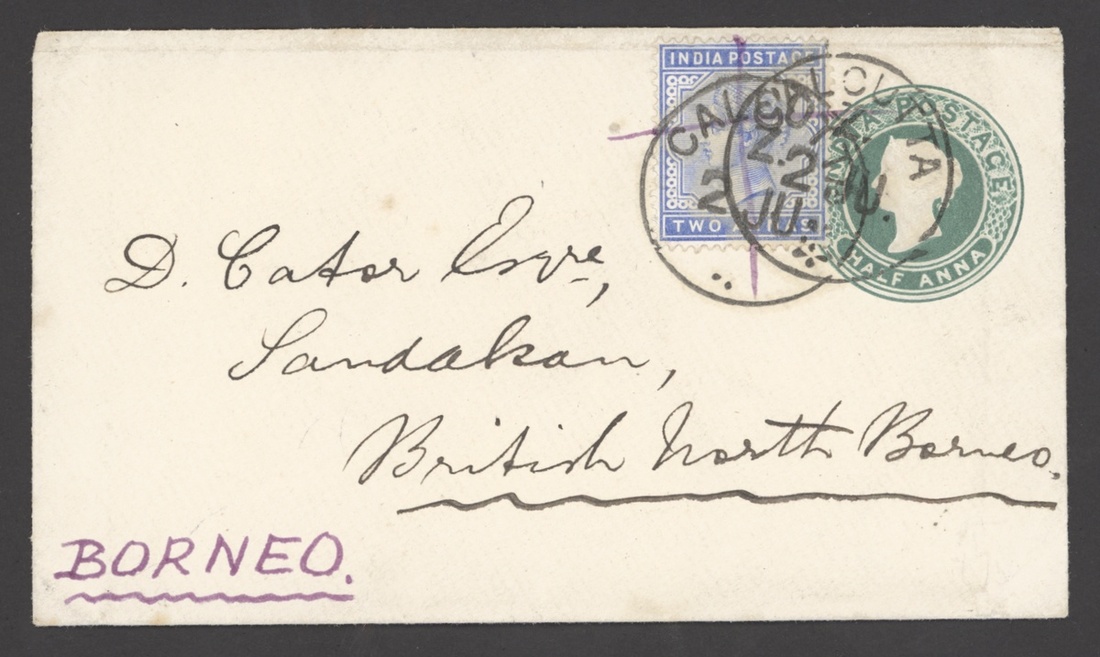 INDIA POSTAGE
TWO ANNAS
CALCUTTA
2
JU.
CALCUTTA
2
JU.
POSTAGE
HALF ANNA
D. Cator Esqre,
Sandakan,
British North Borneo.
BORNEO.